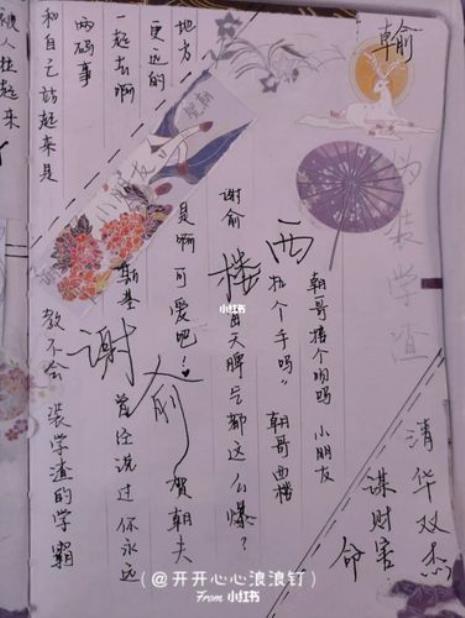 瀚
俞
伪装学渣
清华双杰
谋财害
命
朝哥搭个吻吗 小朋友
拉个手吗” 朝哥西楼
西
楼
谢俞
天脾气都这么爆？
是啊可爱吧！
谢
俞
贺朝夫
斯基
曾经说过你永远
教不会 装学渣的学霸
地方
更远的
一起去啊
两码事
和自己站起来是
被人拉起来
小朋友
小红书
(@开开心心浪浪钉)
From 小红书